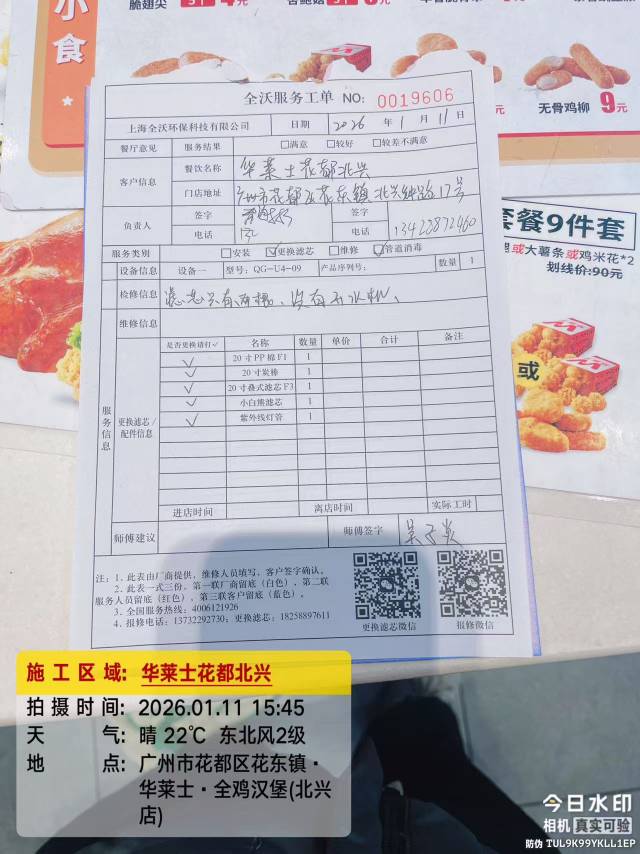 小食
脆翅尖
4元
香鲍菇
无骨鸡柳 9元
套餐9件套
或大薯条或鸡米花*2
划线价:90元
或
全沃服务工单 NO: 0019606
上海全沃环保科技有限公司 日期 2026 年 1 月 11 日
餐厅意见 服务结果 □满意 □较好 □较差不满意
客户信息 餐饮名称 华莱士花都北兴
门店地址 广州市花都区花东镇北兴钟路17号
负责人 签字 签字
电话 132 电话 13422872460
服务类别 □安装 ☑更换滤芯 □维修 ☑管道消毒
设备信息 设备一 型号: QG-U4-09 产品序列号: 数量 1
检修信息 滤芯只有两根、没有开水机、
维修信息
服务信息
更换滤芯/配件信息
是否更换请打✓ 名称 数量 单价 合计 备注
✓ 20寸PP棉F1 1
✓ 20寸炭棒 1
✓ 20寸叠式滤芯F3 1
✓ 小白熊滤芯 1
✓ 紫外线灯管 1
进店时间 离店时间 实际工时
师傅建议 师傅签字
注: 1、此表由厂商提供, 维修人员填写, 客户签字确认。
2、此表一式三份, 第一联厂商留底(白色), 第二联
服务人员留底(红色), 第三联客户留底(蓝色)。
3、全国服务热线: 4006121926
4、报修电话: 13732292730; 更换滤芯: 18258897611
更换滤芯微信 报修微信
施工区域: 华莱士花都北兴
拍摄时间: 2026.01.11 15:45
天气: 晴 22℃ 东北风2级
地点: 广州市花都区花东镇·
华莱士·全鸡汉堡(北兴
店)
今日水印
相机 真实可验
防伪 TUL9K99YKLL1EP